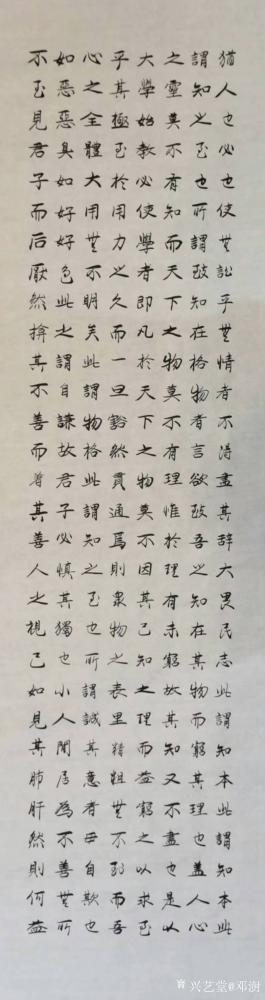 猶人也必也使無訟乎無情者不得盡其辭大畏民志此謂知本此謂知本此
謂知之至也所謂致知在格物者言欲致吾之知在其物而窮其理也蓋人心
之靈莫不有知而天下之物莫不有理惟於理有未窮故其知又不盡也是以
大學始教必使學者即凡於天下之物莫不因其已知之理而益窮之以求至
乎其極至於用力之久而一旦豁然貫通焉則衆物之表里精粗無不到而吾
心之全體大用無不明矣此謂物格此謂知之至也所謂誠其意者毋自欺也
如惡惡臭如好好色此之謂自謙故君子必慎其獨也小人閒居為不善無所
不至見君子而后厭然揜其不善而着其善人之視己如見其肺肝然則何益
兴艺堂@邓澍